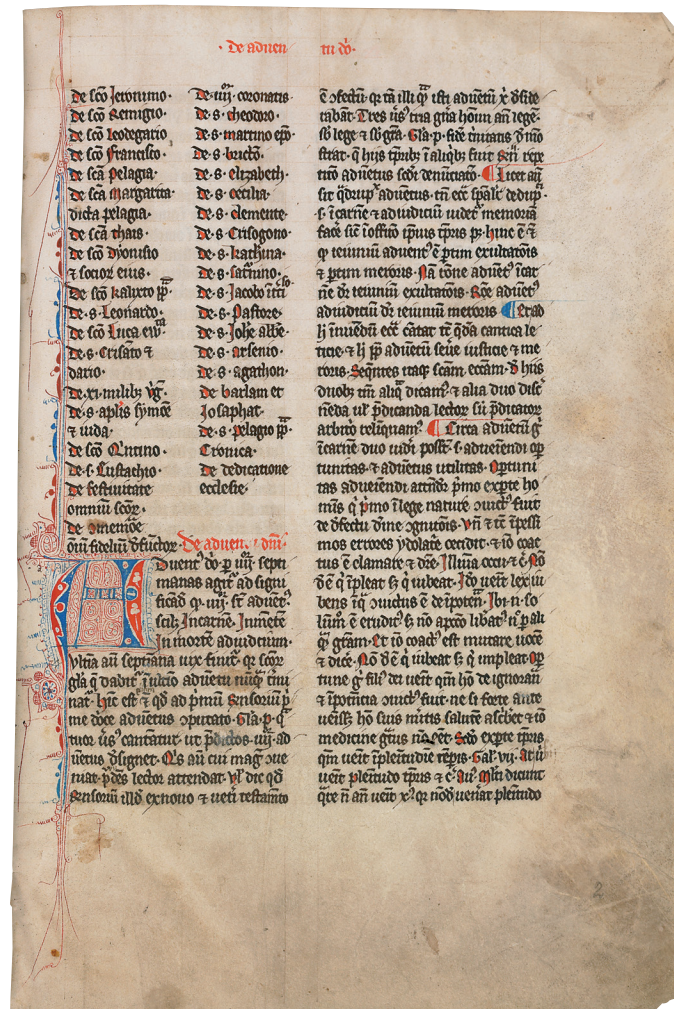 · De aduen tu dñi ·
De sc̃o Ieronimo ·
De sc̃o Remigio ·
De sc̃o leodegario
De sc̃o francisco ·
De sc̃a pelagia ·
De sc̃a Margarita ·
dicta pelagia ·
De sc̃a thais ·
De sc̃o dyonisio
⁊ socior eius ·
De sc̃o kalixto pp̃
De · s · Leonardo ·
De sc̃o Luca ew̃ta
De · s · Crisãto ⁊
dario ·
De · xi · milib; v̾g ·
De · s · ap̃lis symõe
⁊ iuda ·
De sc̃o Qntino ·
De · s · Eustachio ·
De festiuitate
omniũ sc̃oꝝ ·
De ·
oĩu fideliũ d̾fũctoꝝ ·
De · iiij · coronatis ·
De · s · theodoro ·
De · s · martino ep̃o ·
De · s · brictõ ·
De · s · elizabeth ·
De · s · cecilia ·
De · s · clemente ·
De · s · Crisogono ·
De · s · katħina ·
De · s · sat̾nino ·
De · s · Iacobo ĩt̾ciso
De · s · Pastore ·
De · s · Ioħe abb̃e ·
De · s · arsenio ·
De · s · agathon ·
De barlam et
Iosaphat ·
De · s · pelagio pp̃ ·
Cronica ·
De dedicatione
ecclesie ·
De aduen dñi ·
Duent⁹ dñi ꝑ iiij septi
manas agit̾ ad signi
ficãd q̃ · iiij · st̃ aduẽt⁹ ·
scil; Incarnẽ · Inmẽtẽ
In mortẽ ad iudicium ·
vltia aũ septiãia uix finit̾ qꝛ sc̃oꝝ
gl̃a q̃ dabit̾ ĩ ultĩo aduẽtu nũq̃ t̾mi
nat̾ · hinc est ⁊ qd̃ ad p̾mũ Rensoriũ p̾
me d̃ce aduẽtus ↄputato · Gl̃a · p · q̃
tuor ũs⁹ cantatur · ut p̾dictos · iiij · ad
uẽtus d̾signet · aũ cui mag̾ ↄue
niat p̾dẽs lector attendat · Vl̾ dic qd̃
Rensoriũ illd̃ ex nouo ⁊ uet̾i testam̃to
ẽ ↄfectũ · qꝛ tã illi q̃ isti aduẽtũ x̾ d̾side
rabãt · Tres ũs⁹ tria gñа hoĩuʒ añ legẽ ·
s̾ lege ⁊ s̾ gr̃a · Gl̃a · p · fidẽ t̾nitatis d̾mõ
strat · q̃ hijs tp̃rib; ĩ aliq̃b; fuit · Rñ repe
tito aduẽtus sc̃di denũciato · ¶ Licet aũ
sit q̃drup̾ aduẽtus · tñ ecc̃ sp̃alr̾ de dup̾ ·
s · ĩcarñe ⁊ ad iudiciũ uidet̾ memoriã
face̾ sic̾ ĩ offitio ip̃ius tp̃ris pꝫ · hinc ẽ ⁊
q̃ ieiuniũ aduent⁹ ẽ ꝑtim exultatõis
⁊ ꝑtim meroris · Nã rõne aduẽt⁹ ĩcar
ñe dr̃ ieiuniũ exultatõis · Rõe aduẽt⁹
ad iudiciũ dr̃ ieiuniũ meroris · ¶ Et ad
h̾ innuẽdũ ecc̃ cãtat tc̃ q̃dã cantica le
ticie · ⁊ h̾ pp̃ aduẽtũ seũe iusticie ⁊ me
roris · Seq̃ntes itaq; sc̃am ecc̃am · d̾ hijs
duob; tm̃ aliq̃ dicam⁹ · ⁊ alia duo disc̾
nẽda ul̾ p̾dicanda lector siu̾ p̾dicator
arbit̾o relinquam⁹ · ¶ Circa aduẽtũ g̾
ĩcarñe duo uidr̃i poss̃t · s · adueniendi op
tunitas · ⁊ aduẽtus utilitas · Optuni
tas adueiẽdi attendit̾ p̾mo ex p̾te ho
mĩs q̾ p̾mo ĩ lege nature ↄuict⁹ fuit
de d̾fectu diũne ↄgnitõis · vñ ⁊ tc̃ ĩ pessi
mos errores ydolat̾e cecidit · ⁊ iõ coac
tus ẽ clamare ⁊ dic̃e · Illuĩa oc̾l̾ · ⁊ c̃ · Nõ
d̾ẽ q̃ ĩpleat s̃ q̃ iubeat · Iõ ueĩt lex iu
bens ĩ q̃ ↄuictus ẽ de ĩpotẽti · Ibi · n · so
lũm̃ ẽ erudit⁹ s̃ nõ a pc̃o libat⁹ · n̾ ꝑ ali
q̃ gr̃am · Et iõ coact⁹ est mutare uocẽ
⁊ dic̃e · Nõ d̾ẽ q̃ iubeat s̃ q̃ impleat · Op
tune g̾ fili⁹ d̾i ueĩt · qm̃ hõ de ignorañ
⁊ ĩpotẽcia ↄuict⁹ fuit · ne si forte ante
ueĩss; hõ suis m̾itis salutẽ asc̾bẽt · ⁊ iõ
medicine gr̃us nõ e̾et · Sc̃do ex ꝑte tp̃ris
qm̃ ueĩt ĩ plenitudĩe tẽpis · Gal̾ · vij · At ũ
ueĩt plenitudo tp̃ris ⁊ c̃ · Aũ · Ml̾ti dicunt
q̃re ñ añ ueĩt x̾⁹ · qꝛ nõd ueñat plenitudo
2